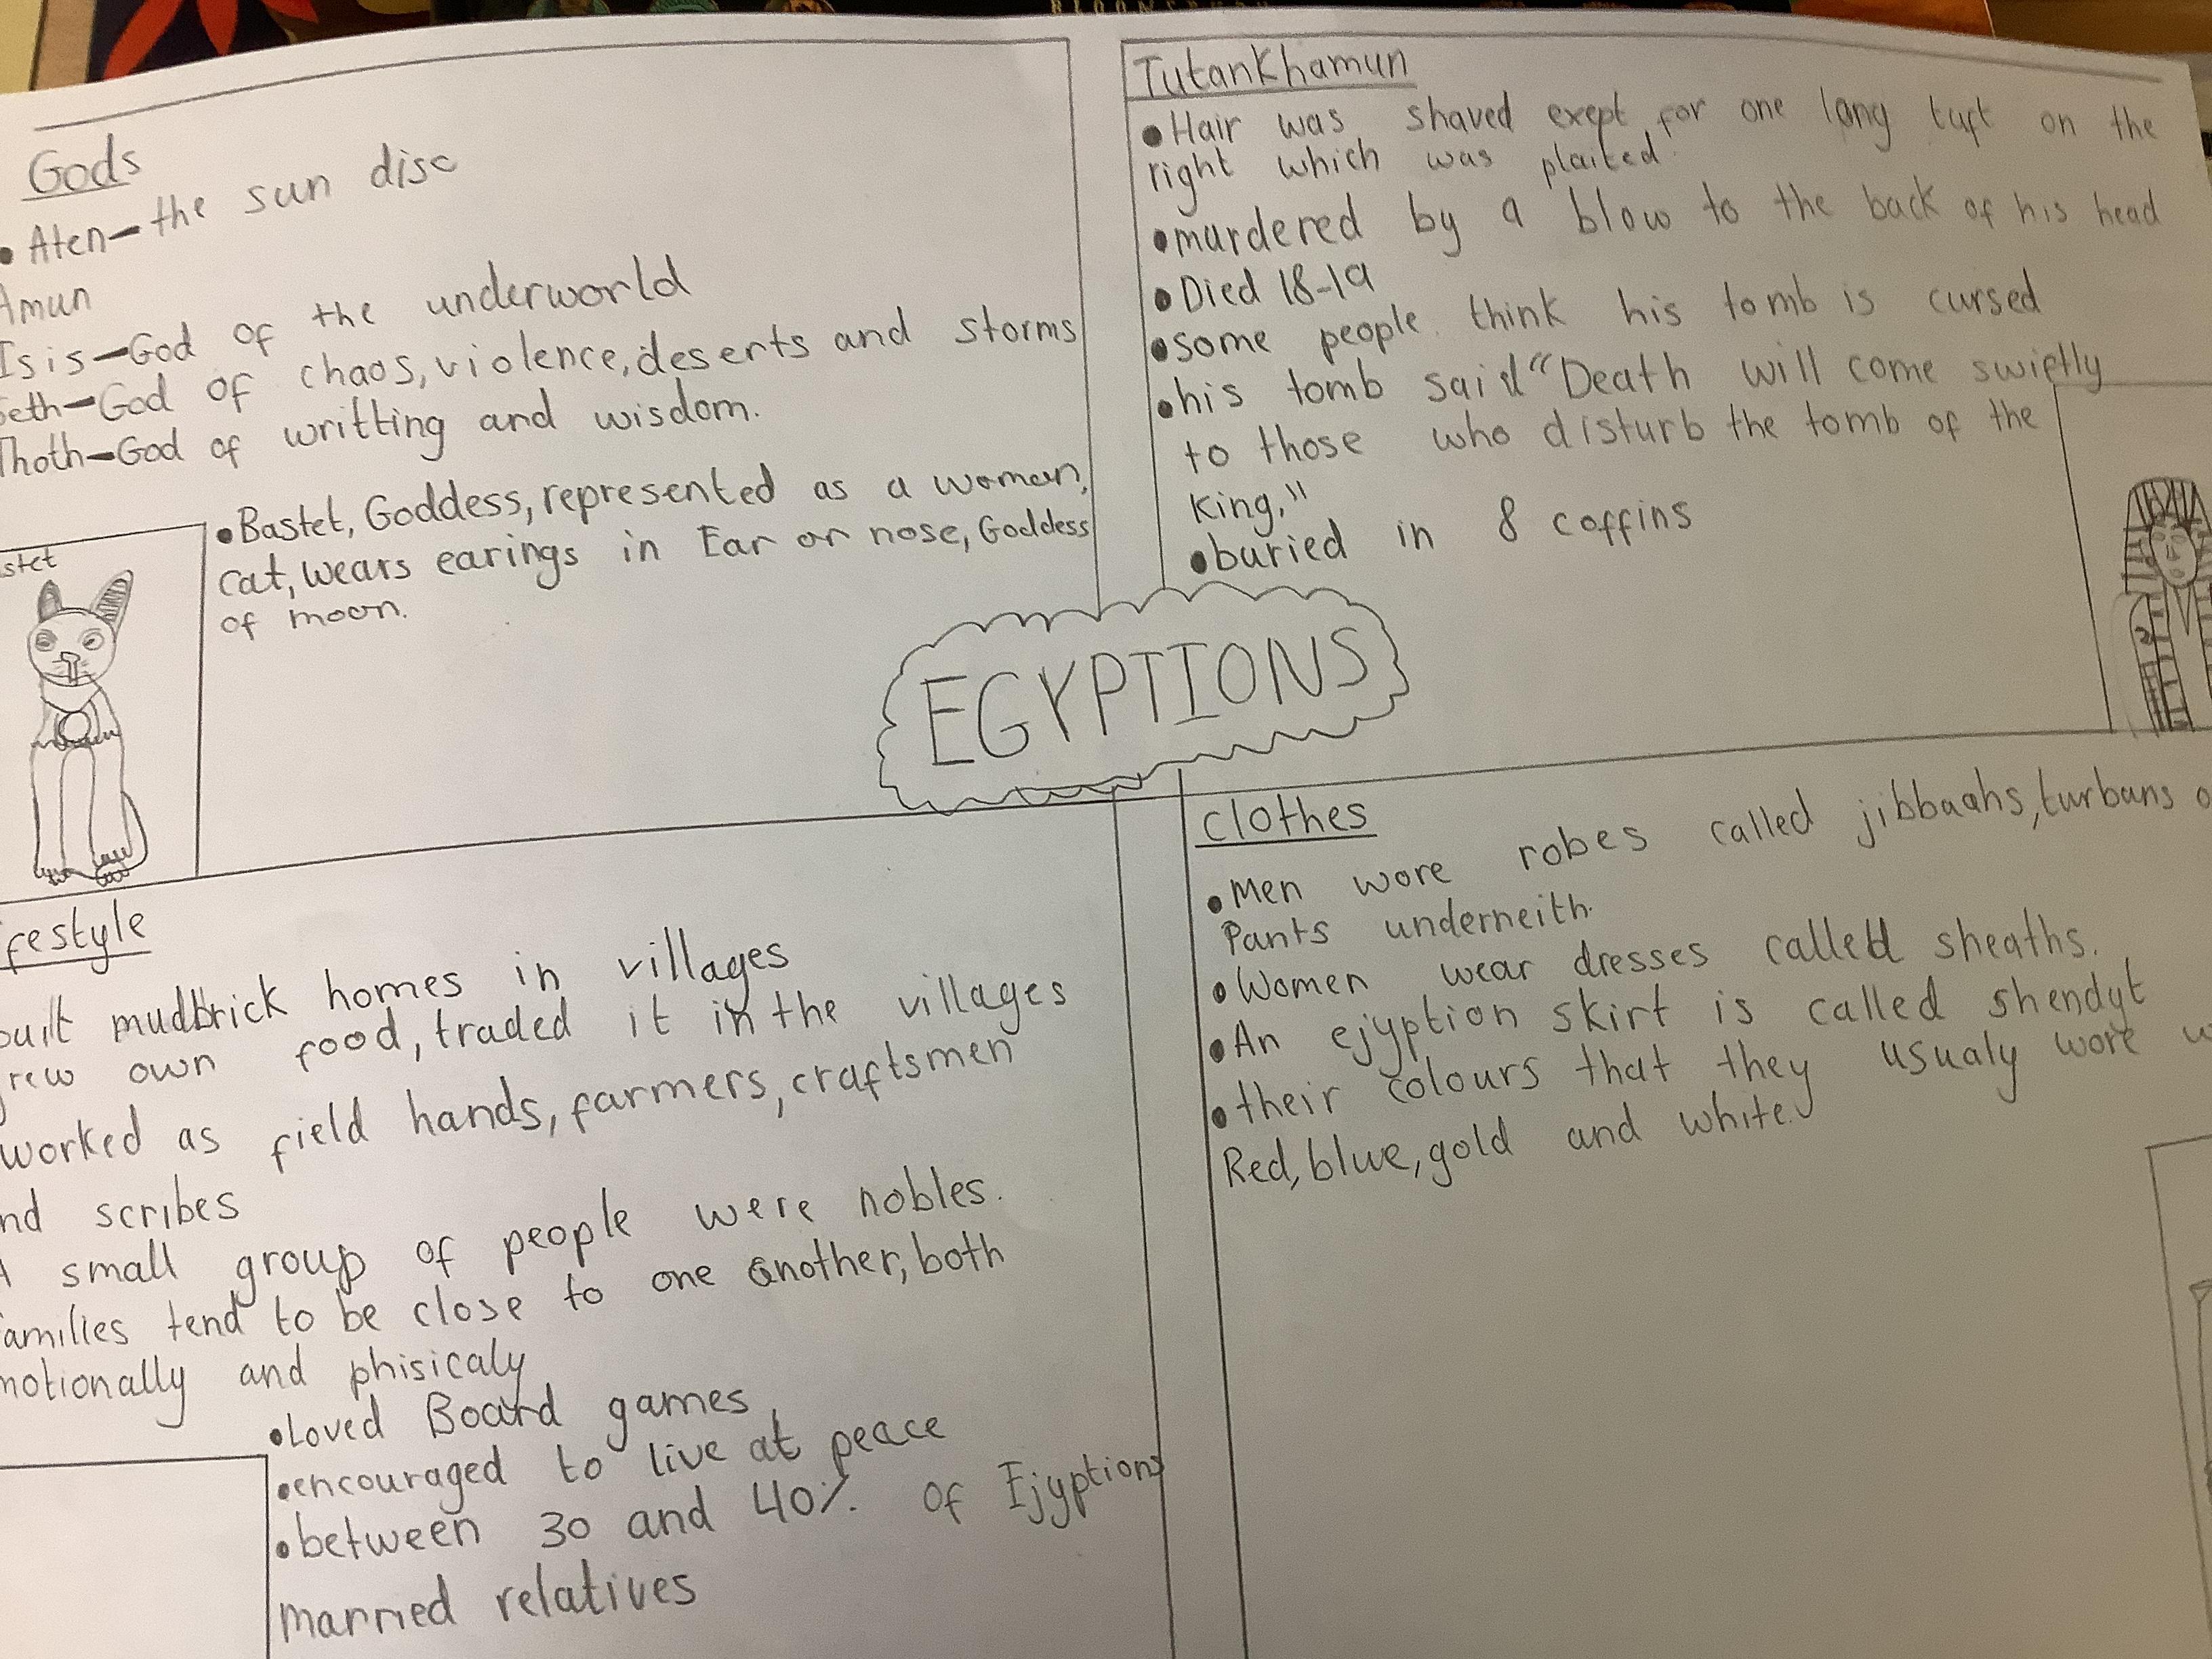 Gods
• Aten—the sun disc
Amun
Isis—God of the underworld
Seth—God of chaos, violence, deserts and storms
Thoth—God of writting and wisdom.
• Bastet, Goddess, represented as a woman,
cat, wears earings in Ear or nose, Goddess
of moon.
stet
Tutankhamun
• Hair was shaved exept for one long tuft on the
right which was plaited.
• murdered by a blow to the back of his head
• Died 18-19
• some people think his tomb is cursed
• his tomb said "Death will come swiftly
to those who disturb the tomb of the
King,"
• buried in 8 coffins
EGYPTIONS
festyle
built mudbrick homes in villages
grew own food, traded it in the villages
worked as field hands, farmers, craftsmen
nd scribes
A small group of people were nobles.
families tend to be close to one another, both
motionally and phisicaly
• Loved Board games
• encouraged to live at peace
• between 30 and 40% of Ejyptions
married relatives
Clothes
• Men wore robes called jibbaahs, turbans
Pants underneith.
• Women wear dresses called sheaths.
• An ejyption skirt is called shendyt
• their colours that they usualy wore
Red, blue, gold and white.